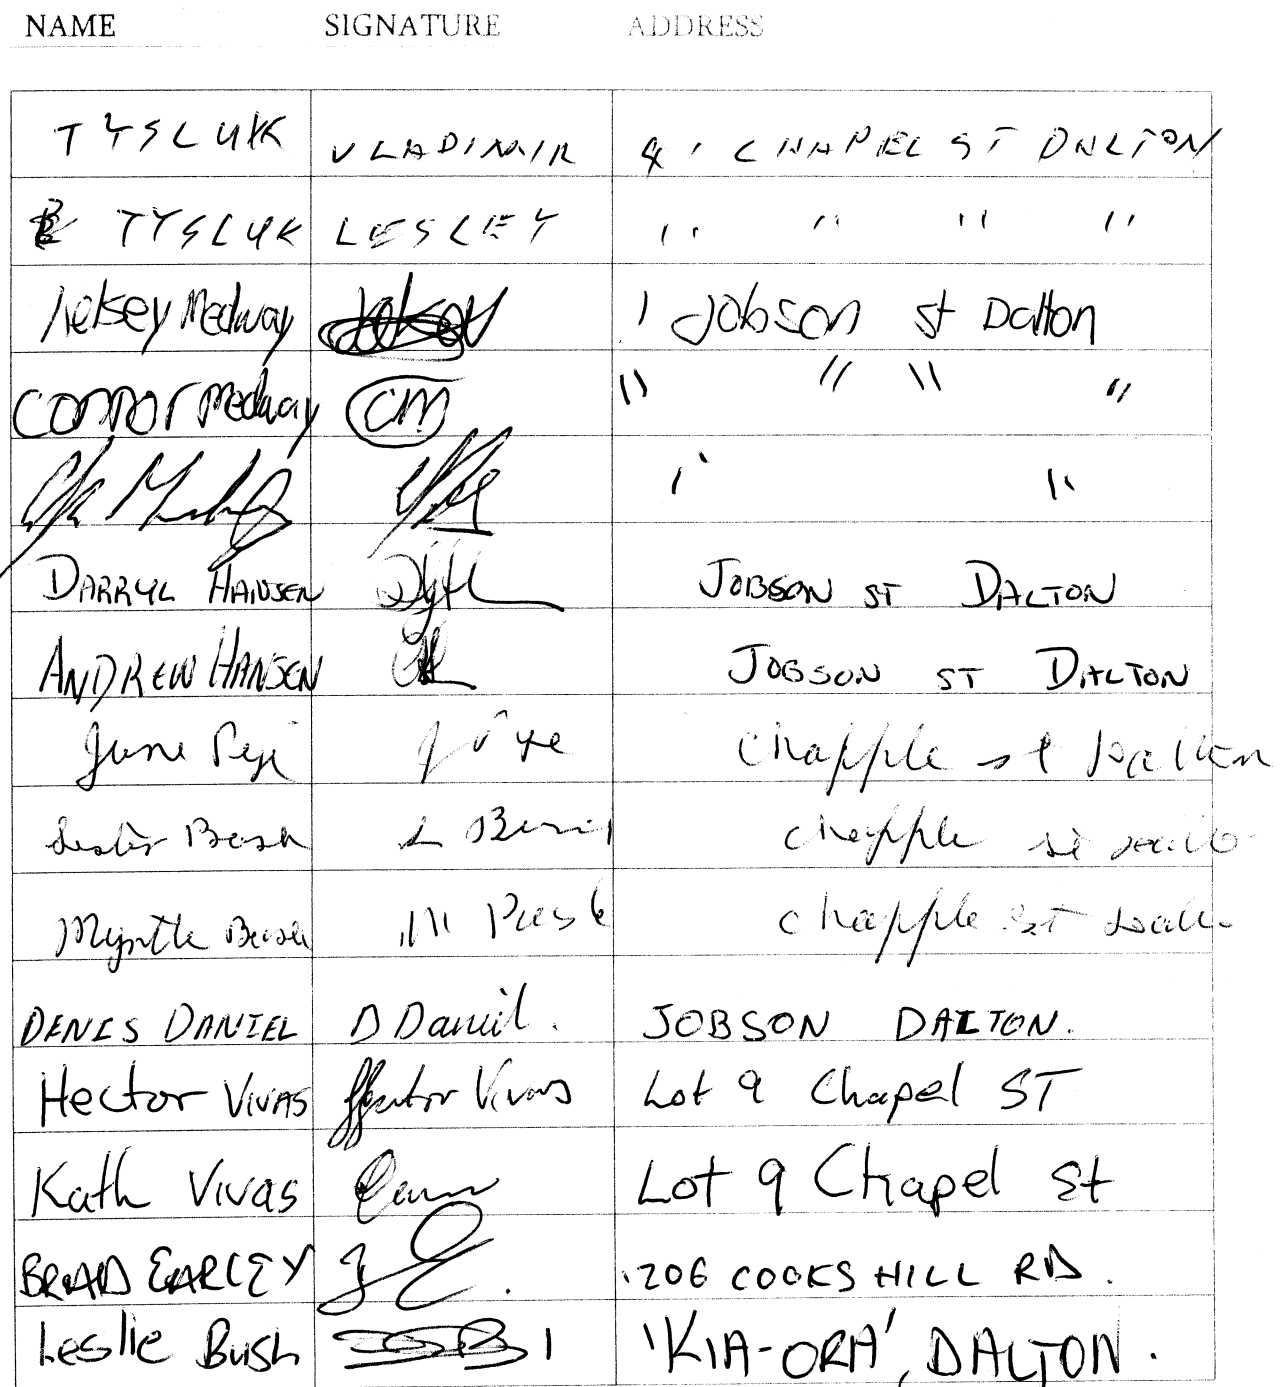 NAME SIGNATURE ADDRESS
TYSLUK VLADIMIR 4 CHAPEL ST DALTON
TYSLUK LESLEY " " " "
Kelsey Medway 1 Jobson st Dalton
Connor Medway CM " " " "
" "
DARRYL HANSEN JOBSON ST DALTON
ANDREW HANSEN JOBSON ST DALTON
June chapple st Dalton
Bush L chapple st
Myrtle Bush M chapple st
DENIS DANIEL D Daniel. JOBSON DALTON.
Hector VIVAS Hector Vivas Lot 9 Chapel ST
Kath Vivas Lot 9 Chapel St
BRAD EARLEY 206 COOKS HILL RD.
Leslie Bush 'KIA-ORA', DALTON.